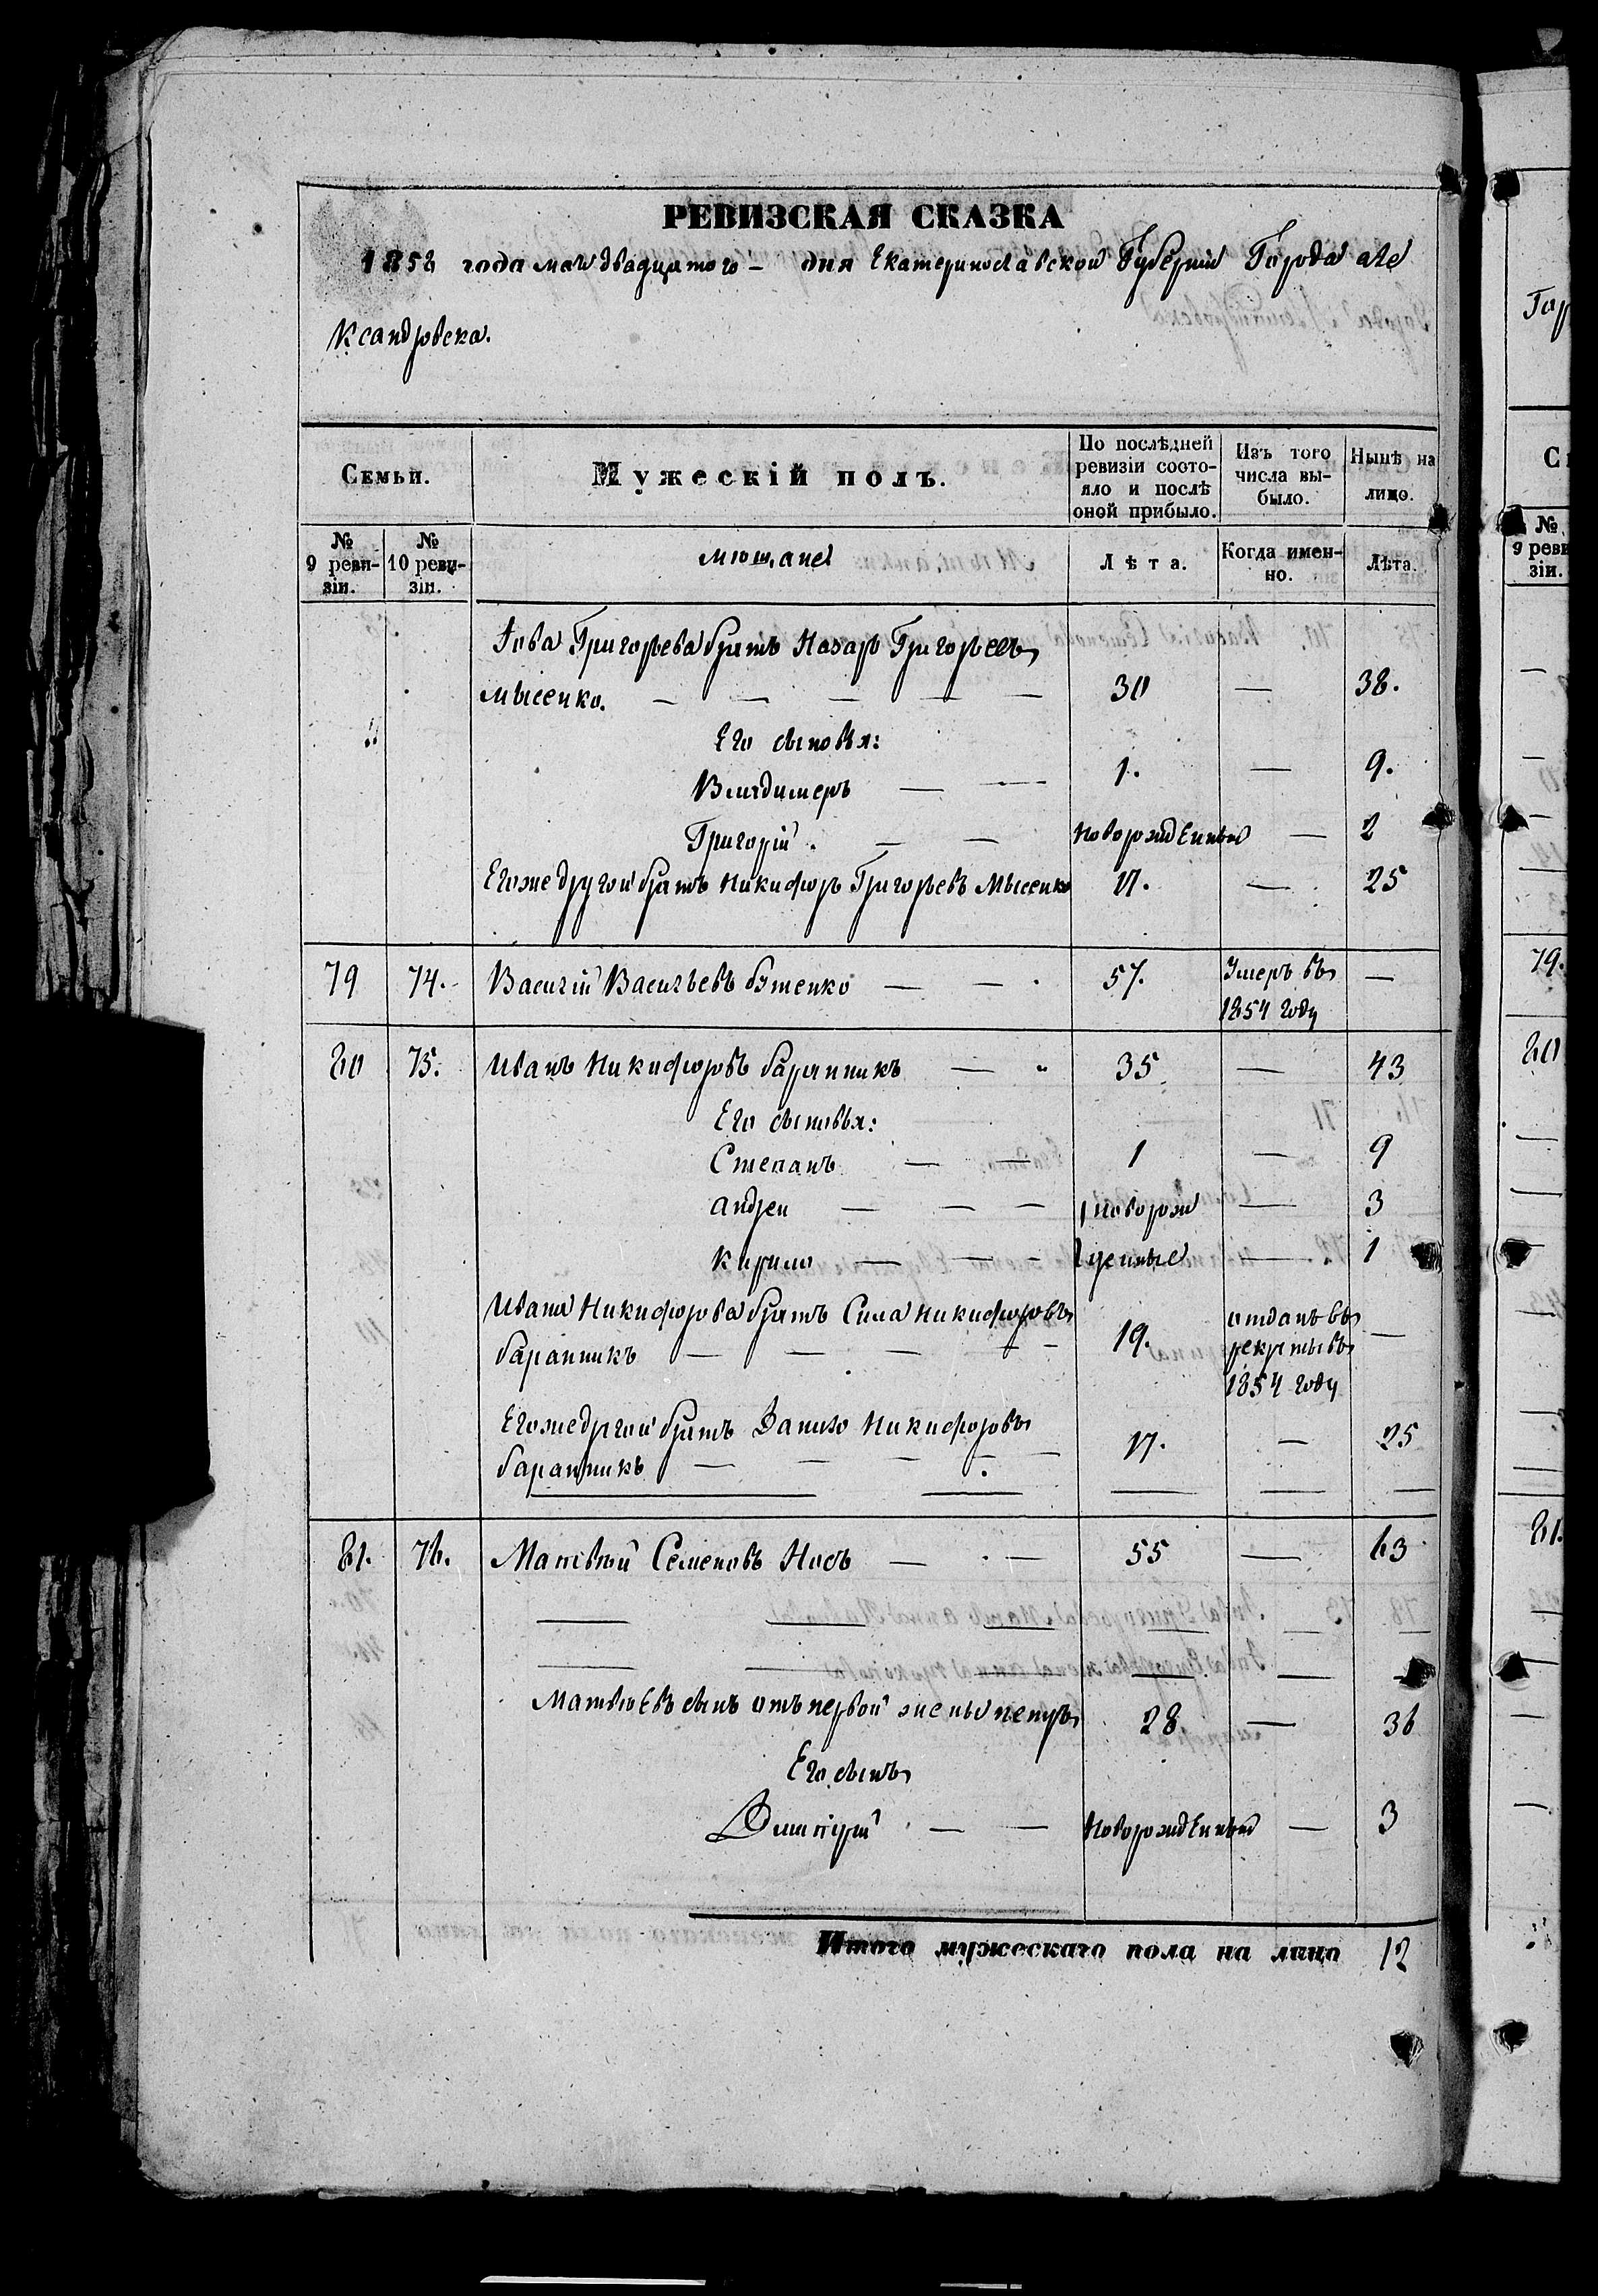 РЕВИЗСКАЯ СКАЗКА
1858 года мая двадцатого – дня Екатеринославской Губерніи Города але
ксандровска.
Семьи.
Мужескій полъ.
По послѣдней ревизіи состояло и послѣ оной прибыло.
Изъ того числа выбыло.
Нынѣ на лицо.
№ 9 ревизіи.
№ 10 ревизіи.
мѣщане
Лѣта.
Когда именно.
Лѣта.
Іова Григорьева братъ Назаръ Григорьевъ
мысенко. — — — — — 30 — 38.
Его сыновья:
Владимеръ — — 1. — 9.
Григорій. — — новорожденный — 2
Егоже другой братъ Никифоръ Григорьевъ Мысенко 17. — 25
79 74. Василій Васильевъ бутенко — — 57. Умеръ въ 1854 году —
80 75. Иванъ Никифоровъ баранникъ — 35 — 43
Его сыновья:
Степанъ — — 1 — 9
андрей — — — новорож — 3
кирило — — — денные — 1
Ивана Никифорова братъ Сила никифоровъ
баранникъ — — — — 19. отданъ въ рекруты въ 1854 году —
Егоже другой братъ Данило Никифоровъ
баранникъ — — — — 17. — 25
81. 76. Матвѣй Семеновъ Носъ — — 55 — 63
Матвѣевъ сынъ отъ первой жены петръ 28 — 36
Его сынъ
Димитрій — — Новорожденный — 3
Итого мужескаго пола на лицо 12
Гор
№ 9 реви
зіи.
79.
80
81.